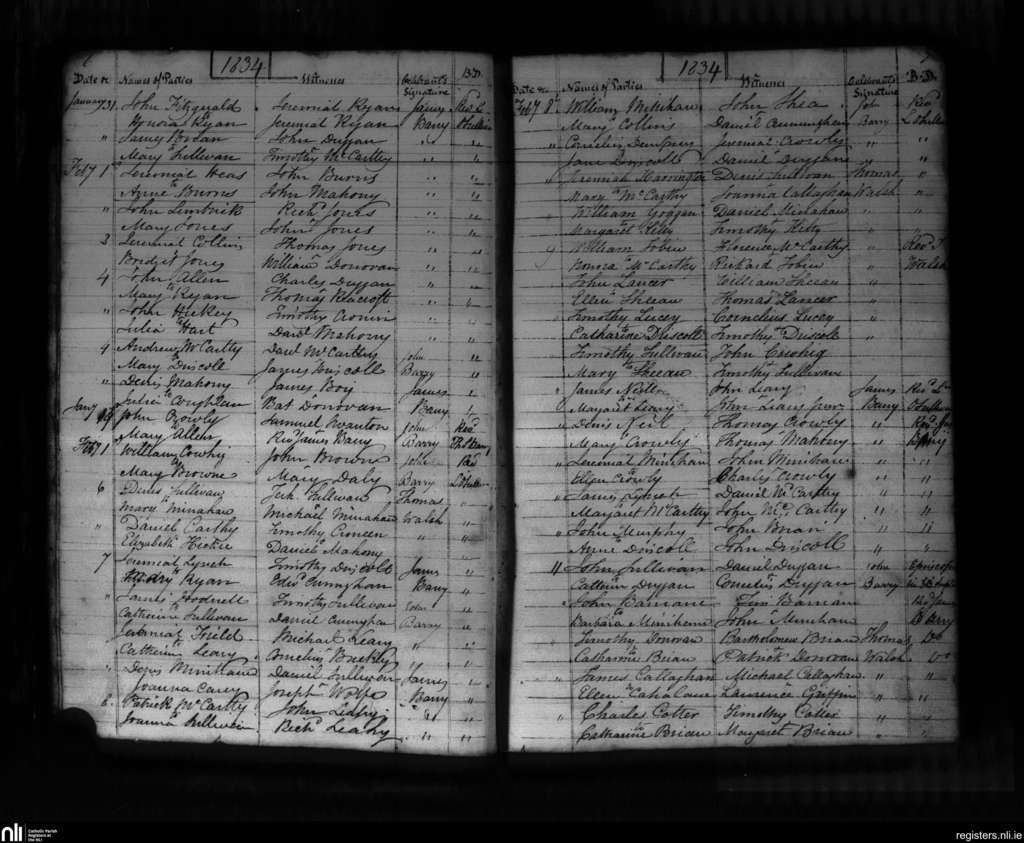 1834
Date &c Names of Parties Witness Celebrant's Signature B.D.
January 31 John Fitzgerald Jeremiah Ryan James Revd L
Honora Ryan Jeremiah Ryan Barry OSullivan
" James Brian John Duggan " "
Mary Sullivan Timothy McCarthy " "
Feby 1st Jeremiah Heas John Burns " "
Anne Burns John Mahony " "
" John Limbrick Richd Jones " "
Mary Jones John Jones " "
3 Jeremiah Collins Thomas Jones " "
Bridget Jones William Donovan " "
4 John Allen Charles Duggan " "
Mary Ryan Thomas " "
" John Hickey Timothy Cronin " "
Julia Hart Danl Mahony " "
4 Andrew McCarthy Danl McCarthy John "
Mary Driscoll James Driscoll Barry "
" Denis Mahony James James "
Julia Coughlan Bat Donovan Barry "
Jany John Crowly Samuel Swanton John Revd
Mary Allen Revd James Barry Barry Ths Barry
Feby 1 William Cowhy John Brown John Rev
Mary Browne Mary Daly Barry LOSullivan
6 Denis Sullivan Jerh Sullivan Thomas "
Mary Minahan Michael Minahan Walsh "
" Daniel Carthy Timothy " "
Elizabeth Hickie Daniel Mahony
7 Jeremiah Lynch Timothy Driscoll James "
Mary Ryan Edwd Cunnghan Barry "
" James Timothy Sullivan John "
Catherine Sullivan Daniel Cunnghan Barry "
" Jeremiah Field Michael Leary " "
Catherine Leary Cornelius Buckly " "
" Denis Minihane Daniel Sullivan James "
Joanna Carey Joseph Wolfe Barry "
8 Patrick McCarthy John Leahy " "
Joanna Sullivan Richd Leahy " "
1834
Date &c Names of Parties Witness Celebrant's Signature B.D.
Feby 8 William Minihan John Shea John Revd
Mary Collins Daniel Cunningham Barry LOSullivan
" Cornelius Dempsey Jeremiah Crowly " "
Jane Driscoll Daniel Duggan " "
" Jeremiah Harrington Denis Sullivan Thomas "
Mary McCarthy Joanna Callaghan Walsh "
" William Goggan Daniel Minahan " "
Margaret Kelly Timothy Kelly " "
9 William Tobin Florence McCarthy " Revd T
Honora McCarthy Rickard Tobin " Walsh
" John Lancer William Sheean "
Ellen Sheean Thomas Lancer "
" Timothy Lucey Cornelius Lucey "
Catharine Driscoll Timothy Driscoll "
" Timothy Sullivan John
Mary Sheean Timothy Sullivan
" James John Leary James Revd L
Margaret Leary John Leary Junr Barry OSullivan
" Denis Neil Thomas Crowly " Revd Jas
Mary Crowly Thomas Mahony " Barry
" Jeremiah Minihan John Minihan " "
Ellen Crowly Charles Crowly " "
" James Lynch Daniel McCarthy " "
Margaret McCarthy John McCarthy " "
" John Murphy John Brian " "
Anne Driscoll John Driscoll " "
11 John Sullivan Daniel Duggan John
Catherine Duggan Cornelius Duggan Barry
" John Barnane Barnane Revd James
Barbara Minihane John Minihan Barry
" Timothy Donovan Bartholomew Brian Thomas Do
Catharine Brian Patrick Donovan Walsh Do
" James Callaghan Michael Callaghan " "
Ellen Lawrence Griffin " "
" Charles Cotter Timothy Cotter " "
Catharine Brian Margaret Brian " "
nli Catholic Parish
Registers at
the NLI
registers.nli.ie